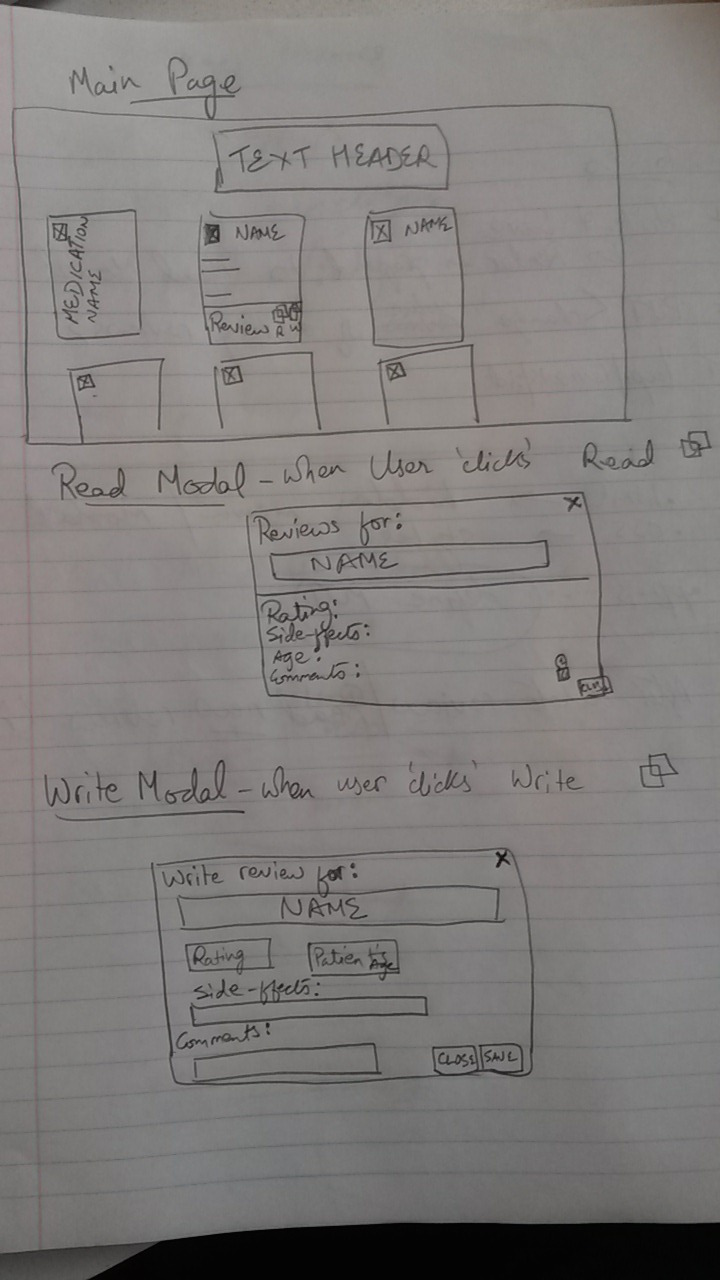 Main Page
TEXT HEADER
MEDICATION NAME
NAME
NAME
Review R W
Read Modal - when User 'clicks' Read
X
Reviews for:
NAME
Rating:
Side-effects:
Age:
Comments:
CLOSE
Write Modal - when user 'clicks' Write
X
Write review for:
NAME
Rating Patient's Age
Side-effects:
Comments:
CLOSE SAVE